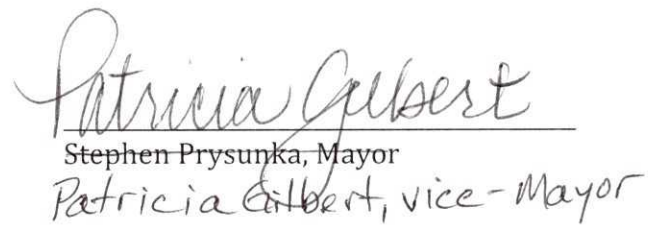 Patricia Gilbert
Stephen Prysunka, Mayor
Patricia Gilbert, vice-Mayor